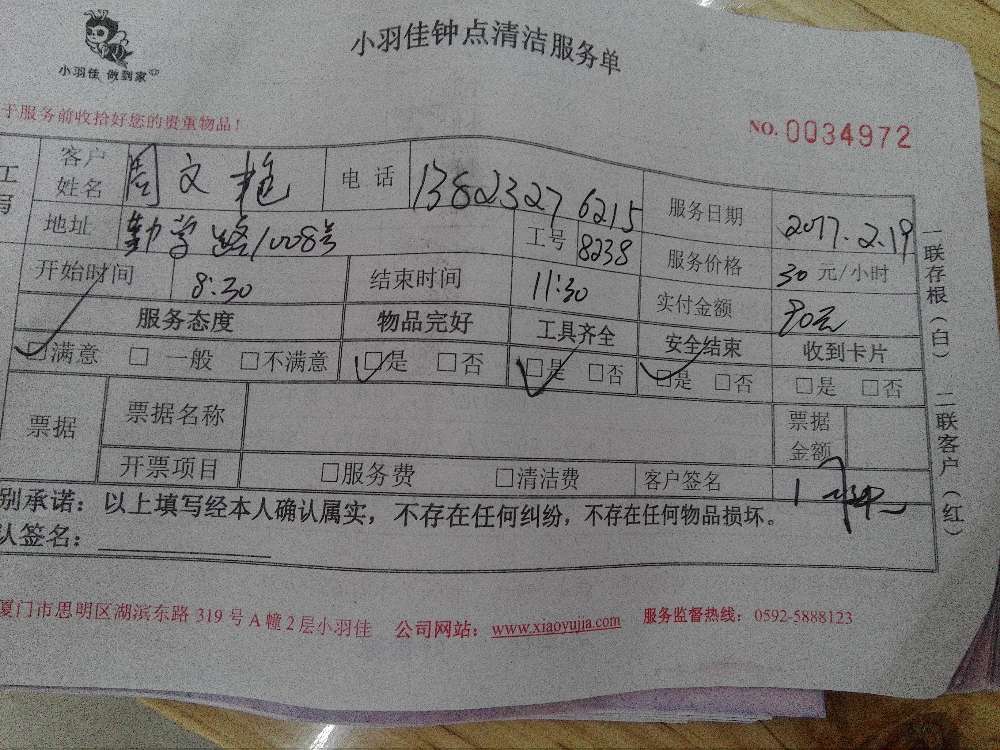 小羽佳 做到家
小羽佳钟点清洁服务单
于服务前收拾好您的贵重物品！
NO. 0034972
工 客户姓名 周文艳 电话 13823276215 服务日期 2017.2.19
写 地址 勤学路1008号 工号 8238 服务价格 30元/小时
开始时间 8:30 结束时间 11:30 实付金额 90元
服务态度 物品完好 工具齐全 安全结束 收到卡片
☑满意 □一般 □不满意 ☑是 □否 ☑是 □否 ☑是 □否 □是 □否
票据 票据名称 票据金额
开票项目 □服务费 □清洁费 客户签名
别承诺：以上填写经本人确认属实，不存在任何纠纷，不存在任何物品损坏。
认签名：
一联存根（白） 二联客户（红）
厦门市思明区湖滨东路 319 号 A 幢 2 层小羽佳 公司网站：www.xiaoyujia.com 服务监督热线：0592-5888123